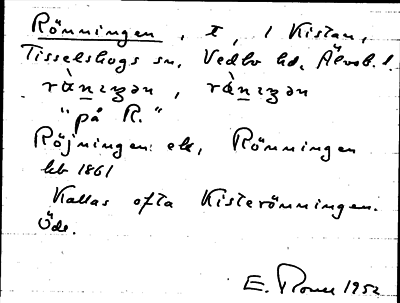 Rönningen, t, i Kistan,
Tisselskogs sn, Vedbo hd, Älvsb. l.
rὰnıʒən, rὰnıʒən
"på R."
Röjningen: ek, Rönningen
kb 1861
Kallas ofta Kisterönningen.
Öde.
E. 1952